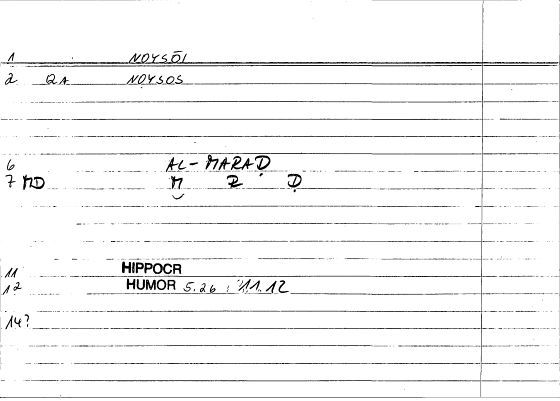 1 NOYSŌI
2 QA NOYSOS
6 AL-MARAḌ
7 MD M R Ḍ
11 HIPPOCR
12 HUMOR 5.26 : 11.12
14?